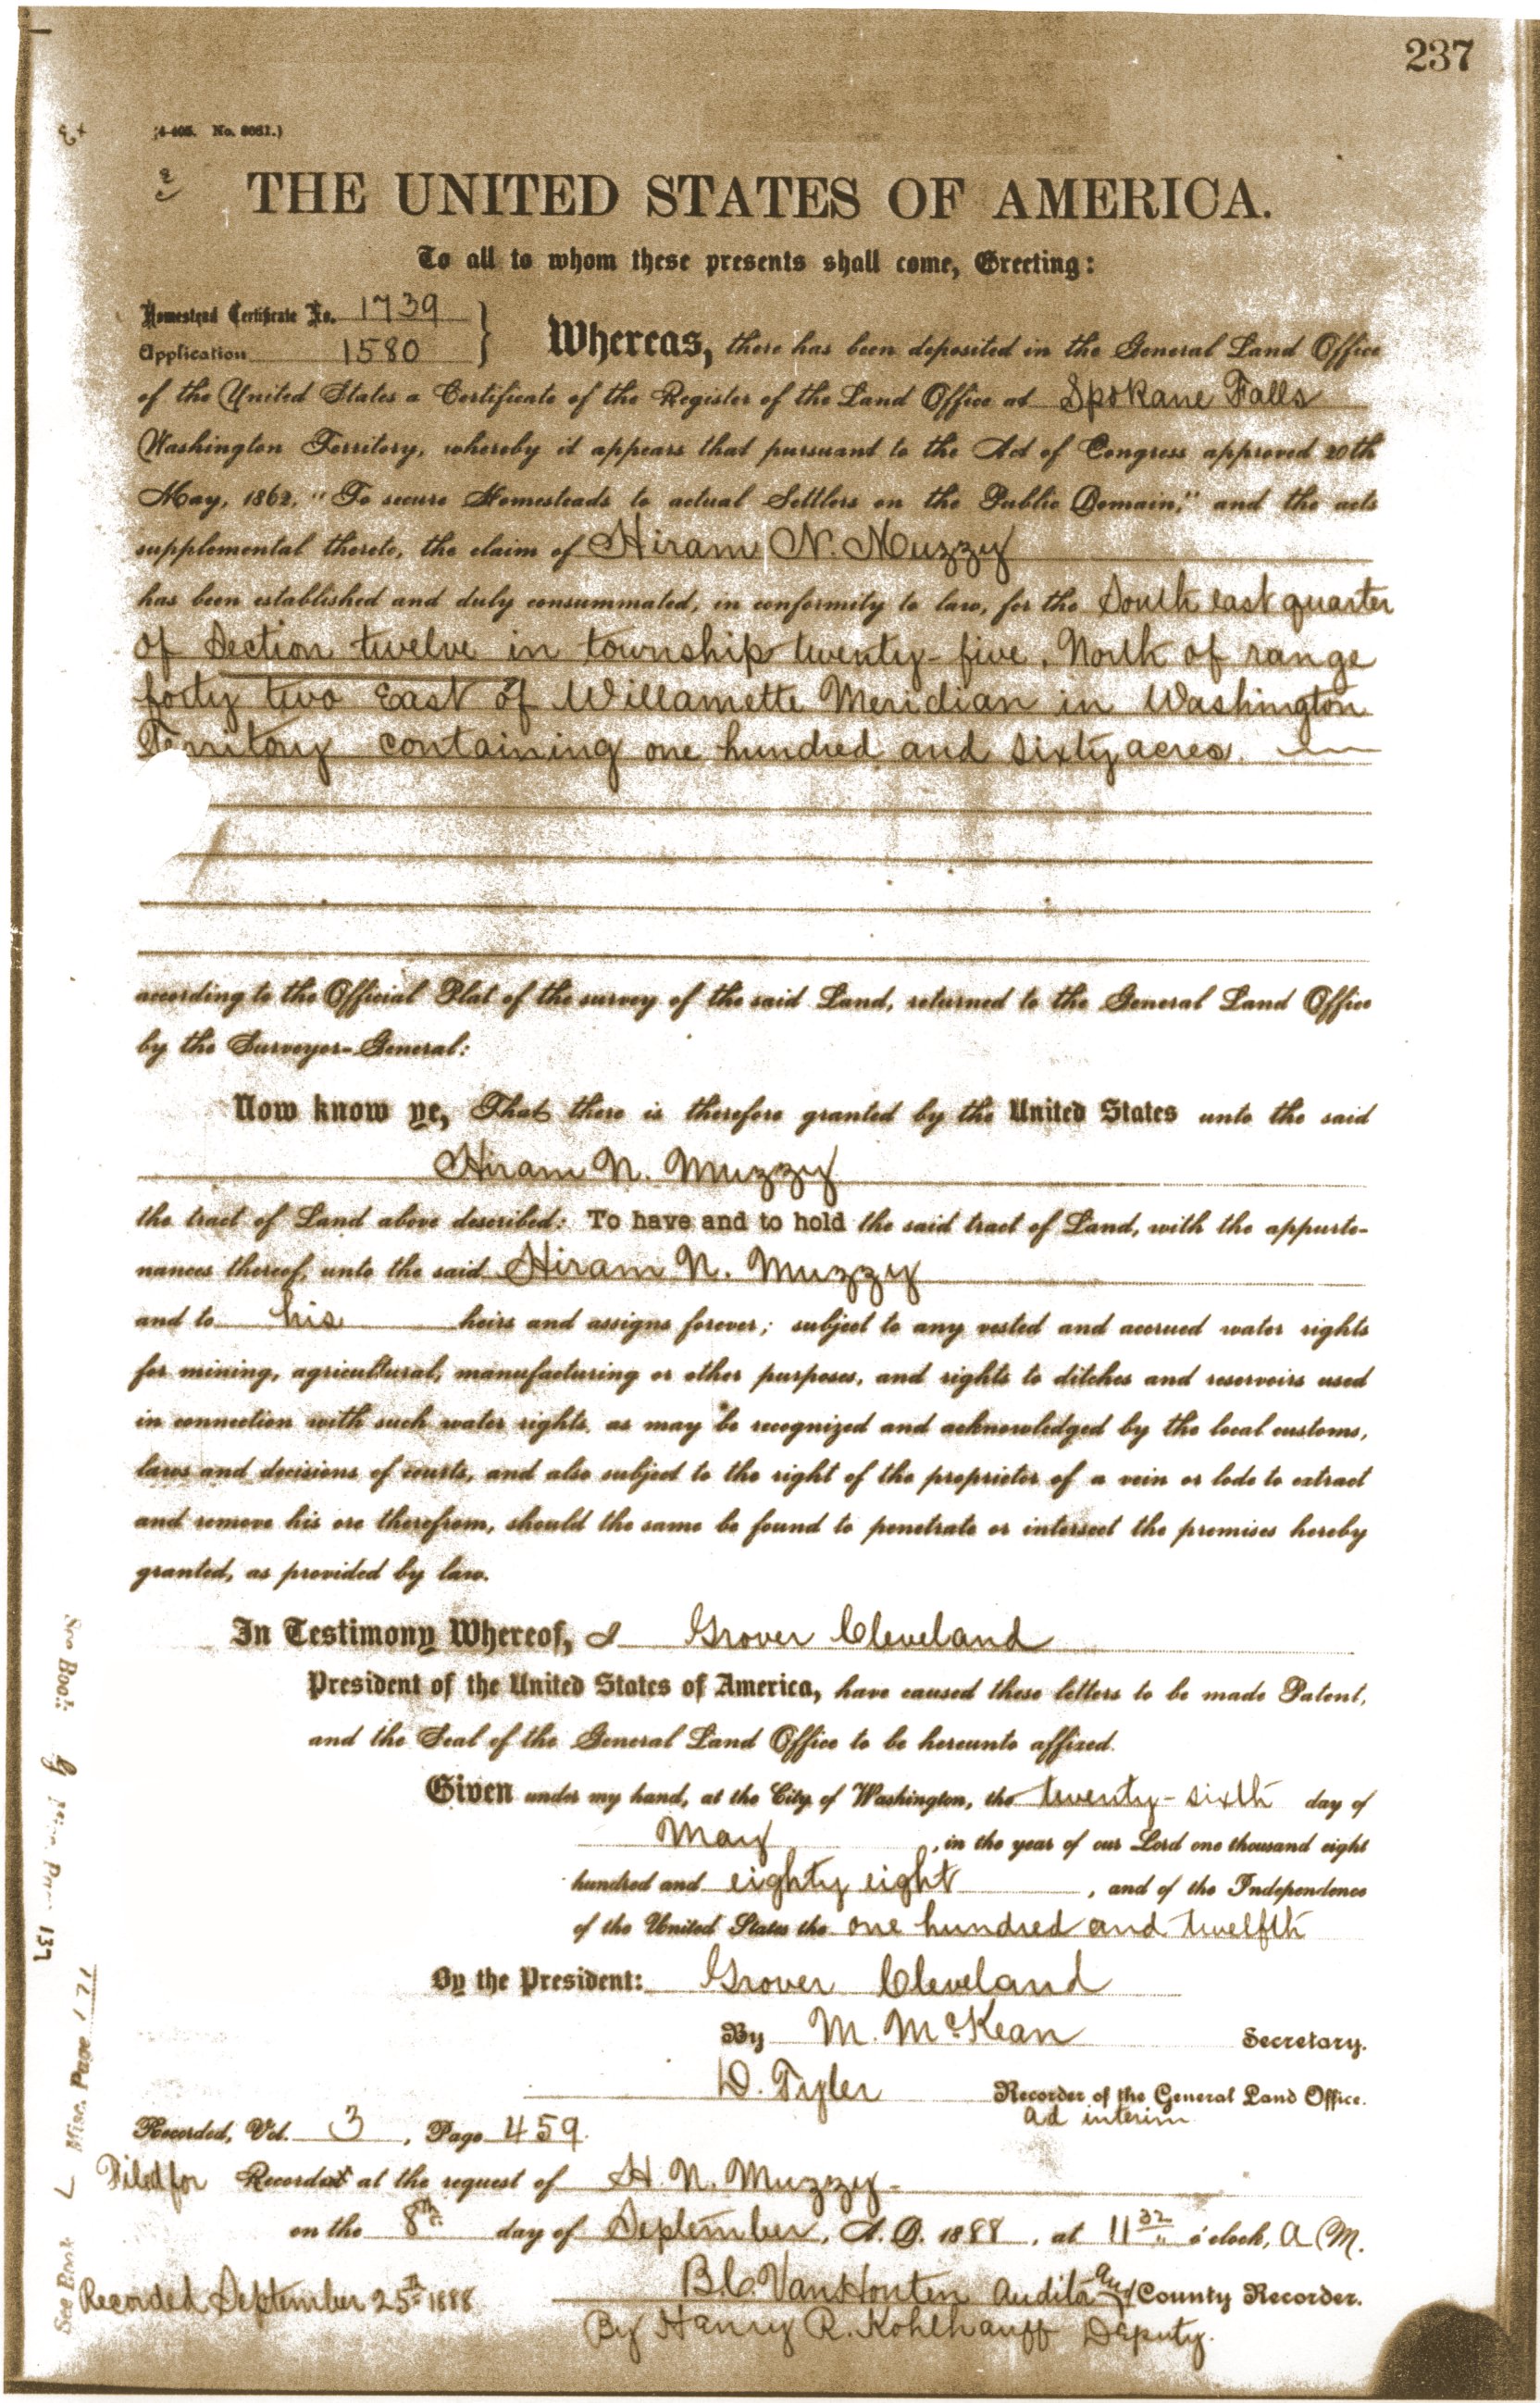 237
(4-405. No. 8081.)
THE UNITED STATES OF AMERICA.
To all to whom these presents shall come, Greeting:
Homestead Certificate No. 1739
Application 1580
Whereas, there has been deposited in the General Land Office
of the United States a Certificate of the Register of the Land Office at Spokane Falls
Washington Territory, whereby it appears that pursuant to the Act of Congress approved 20th
May, 1862, "To secure Homesteads to actual Settlers on the Public Domain," and the acts
supplemental thereto, the claim of Hiram N. Muzzy
has been established and duly consummated, in conformity to law, for the South east quarter
of Section twelve in township twenty-five, North of range
forty two East of Willamette Meridian in Washington
Territory containing one hundred and sixty acres.
according to the Official Plat of the survey of the said Land, returned to the General Land Office
by the Surveyor-General:
Now know ye, That there is therefore granted by the United States unto the said
Hiram N. Muzzy
the tract of Land above described: To have and to hold the said tract of Land, with the appurte-
nances thereof, unto the said Hiram N. Muzzy
and to his heirs and assigns forever; subject to any vested and accrued water rights
for mining, agricultural, manufacturing or other purposes, and rights to ditches and reservoirs used
in connection with such water rights, as may be recognized and acknowledged by the local customs,
laws and decisions of courts, and also subject to the right of the proprietor of a vein or lode to extract
and remove his ore therefrom, should the same be found to penetrate or intersect the premises hereby
granted, as provided by law.
In Testimony Whereof, I Grover Cleveland
President of the United States of America, have caused these letters to be made Patent,
and the Seal of the General Land Office to be hereunto affixed.
Given under my hand, at the City of Washington, the twenty-sixth day of
May, in the year of our Lord one thousand eight
hundred and eighty eight, and of the Independence
of the United States the one hundred and twelfth
By the President: Grover Cleveland
By M. McKean Secretary.
D. Tyler Recorder of the General Land Office.
ad interim
Recorded, Vol. 3, Page 459.
Filed for Record at the request of H. N. Muzzy-
on the 8th day of September, A. D. 1888, at 11 32 o'clock, A M.
B.C. VanHouten Auditor and County Recorder.
Recorded September 25th 1888
By Henry R. Kohlhauff Deputy.
See Book G Misc. Page 137
See Book L Misc. Page 121